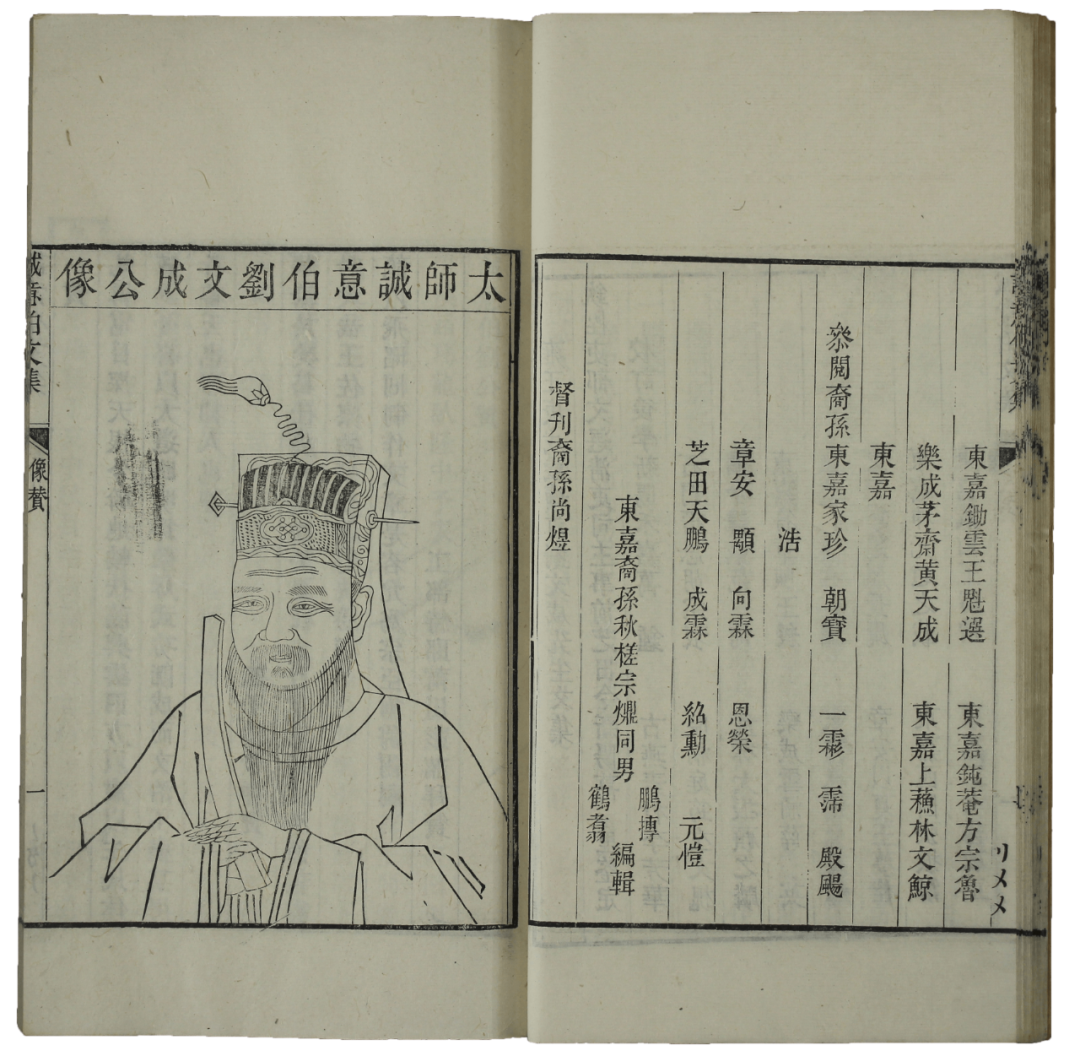 東嘉鋤雲王勉選　東嘉鈍菴方宗魯
樂成茅齋黄天成　東嘉上蘓林文鯨
東嘉
叅閱裔孫東嘉家珍　朝寶　一霦　霈　殿颺
浩
章安　顒　向霖　恩榮
芝田天鵬　成霖　紹勳　元愷
東嘉裔孫秋槎宗爌同男　鵬摶　鶴翥　編輯
督刋裔孫尚煜
太師誠意伯劉文成公像
誠意伯文集　像贊　一